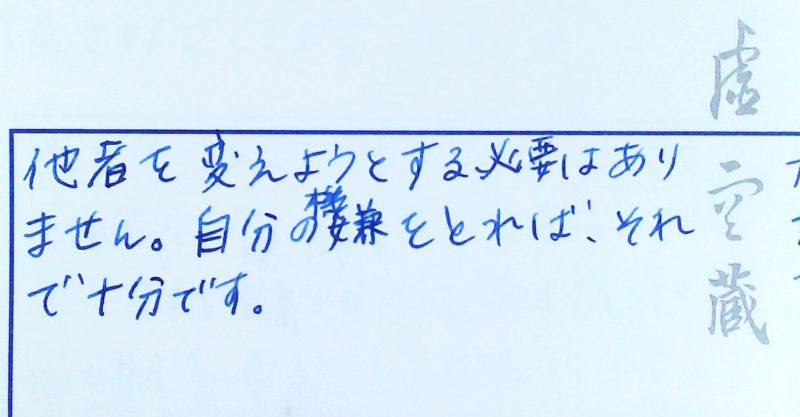 他者を変えようとする必要はあり
ません。自分の機嫌をとれば、それ
で十分です。
虚空蔵